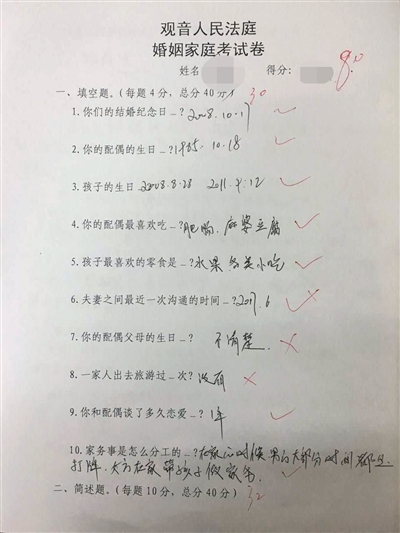 观音人民法庭
婚姻家庭考试卷
姓名 得分:
一、填空题。(每题4分,总分40分) 30
1.你们的结婚纪念日_?2008.10.17
2.你的配偶的生日_?1985.10.18
3.孩子的生日 2008.8.28 2011.9.12
4.你的配偶最喜欢吃_?肥肠、麻婆豆腐
5.孩子最喜欢的零食是_?水果各类小吃
6.夫妻之间最近一次沟通的时间_?2017.6
7.你的配偶父母的生日_? 不清楚.
8.一家人出去旅游过_次?没有
9.你和配偶谈了多久恋爱_?1年
10.家务事是怎么分工的_?在家的时候男的大部分时间都是
打牌、女方在家带孩子做家务
二、简述题。(每题10分,总分40分)